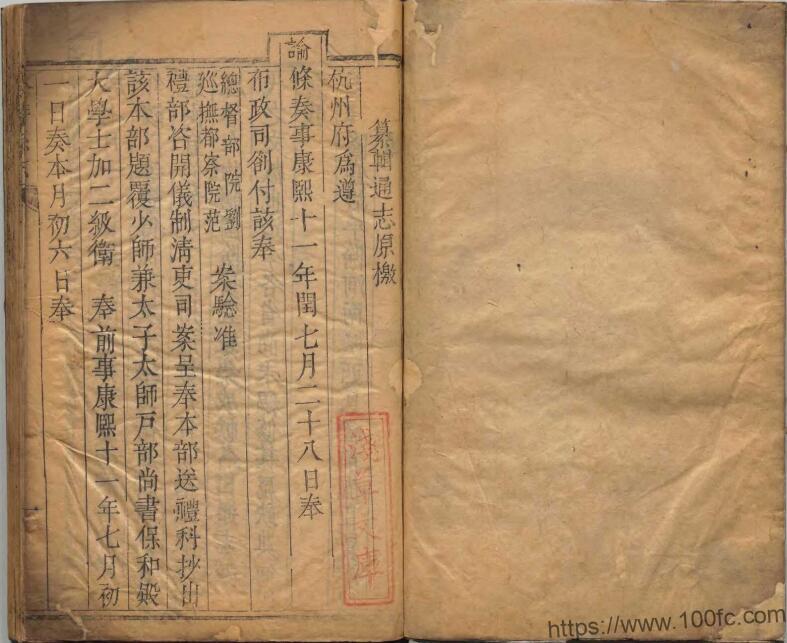 纂輯通志原檄
杭州府為遵
諭條奏事康熙十一年閏七月二十八日奉
布政司劄付該奉
總督部院劉
巡撫都察院范
案驗准
禮部咨開儀制清吏司案呈奉本部送禮科抄出
該本部題覆少師兼太子太師戶部尚書保和殿
大學士加二級衛 奉前事康熙十一年七月初
一日奏本月初六日奉
淺草文庫
一
https://www.100fc.com